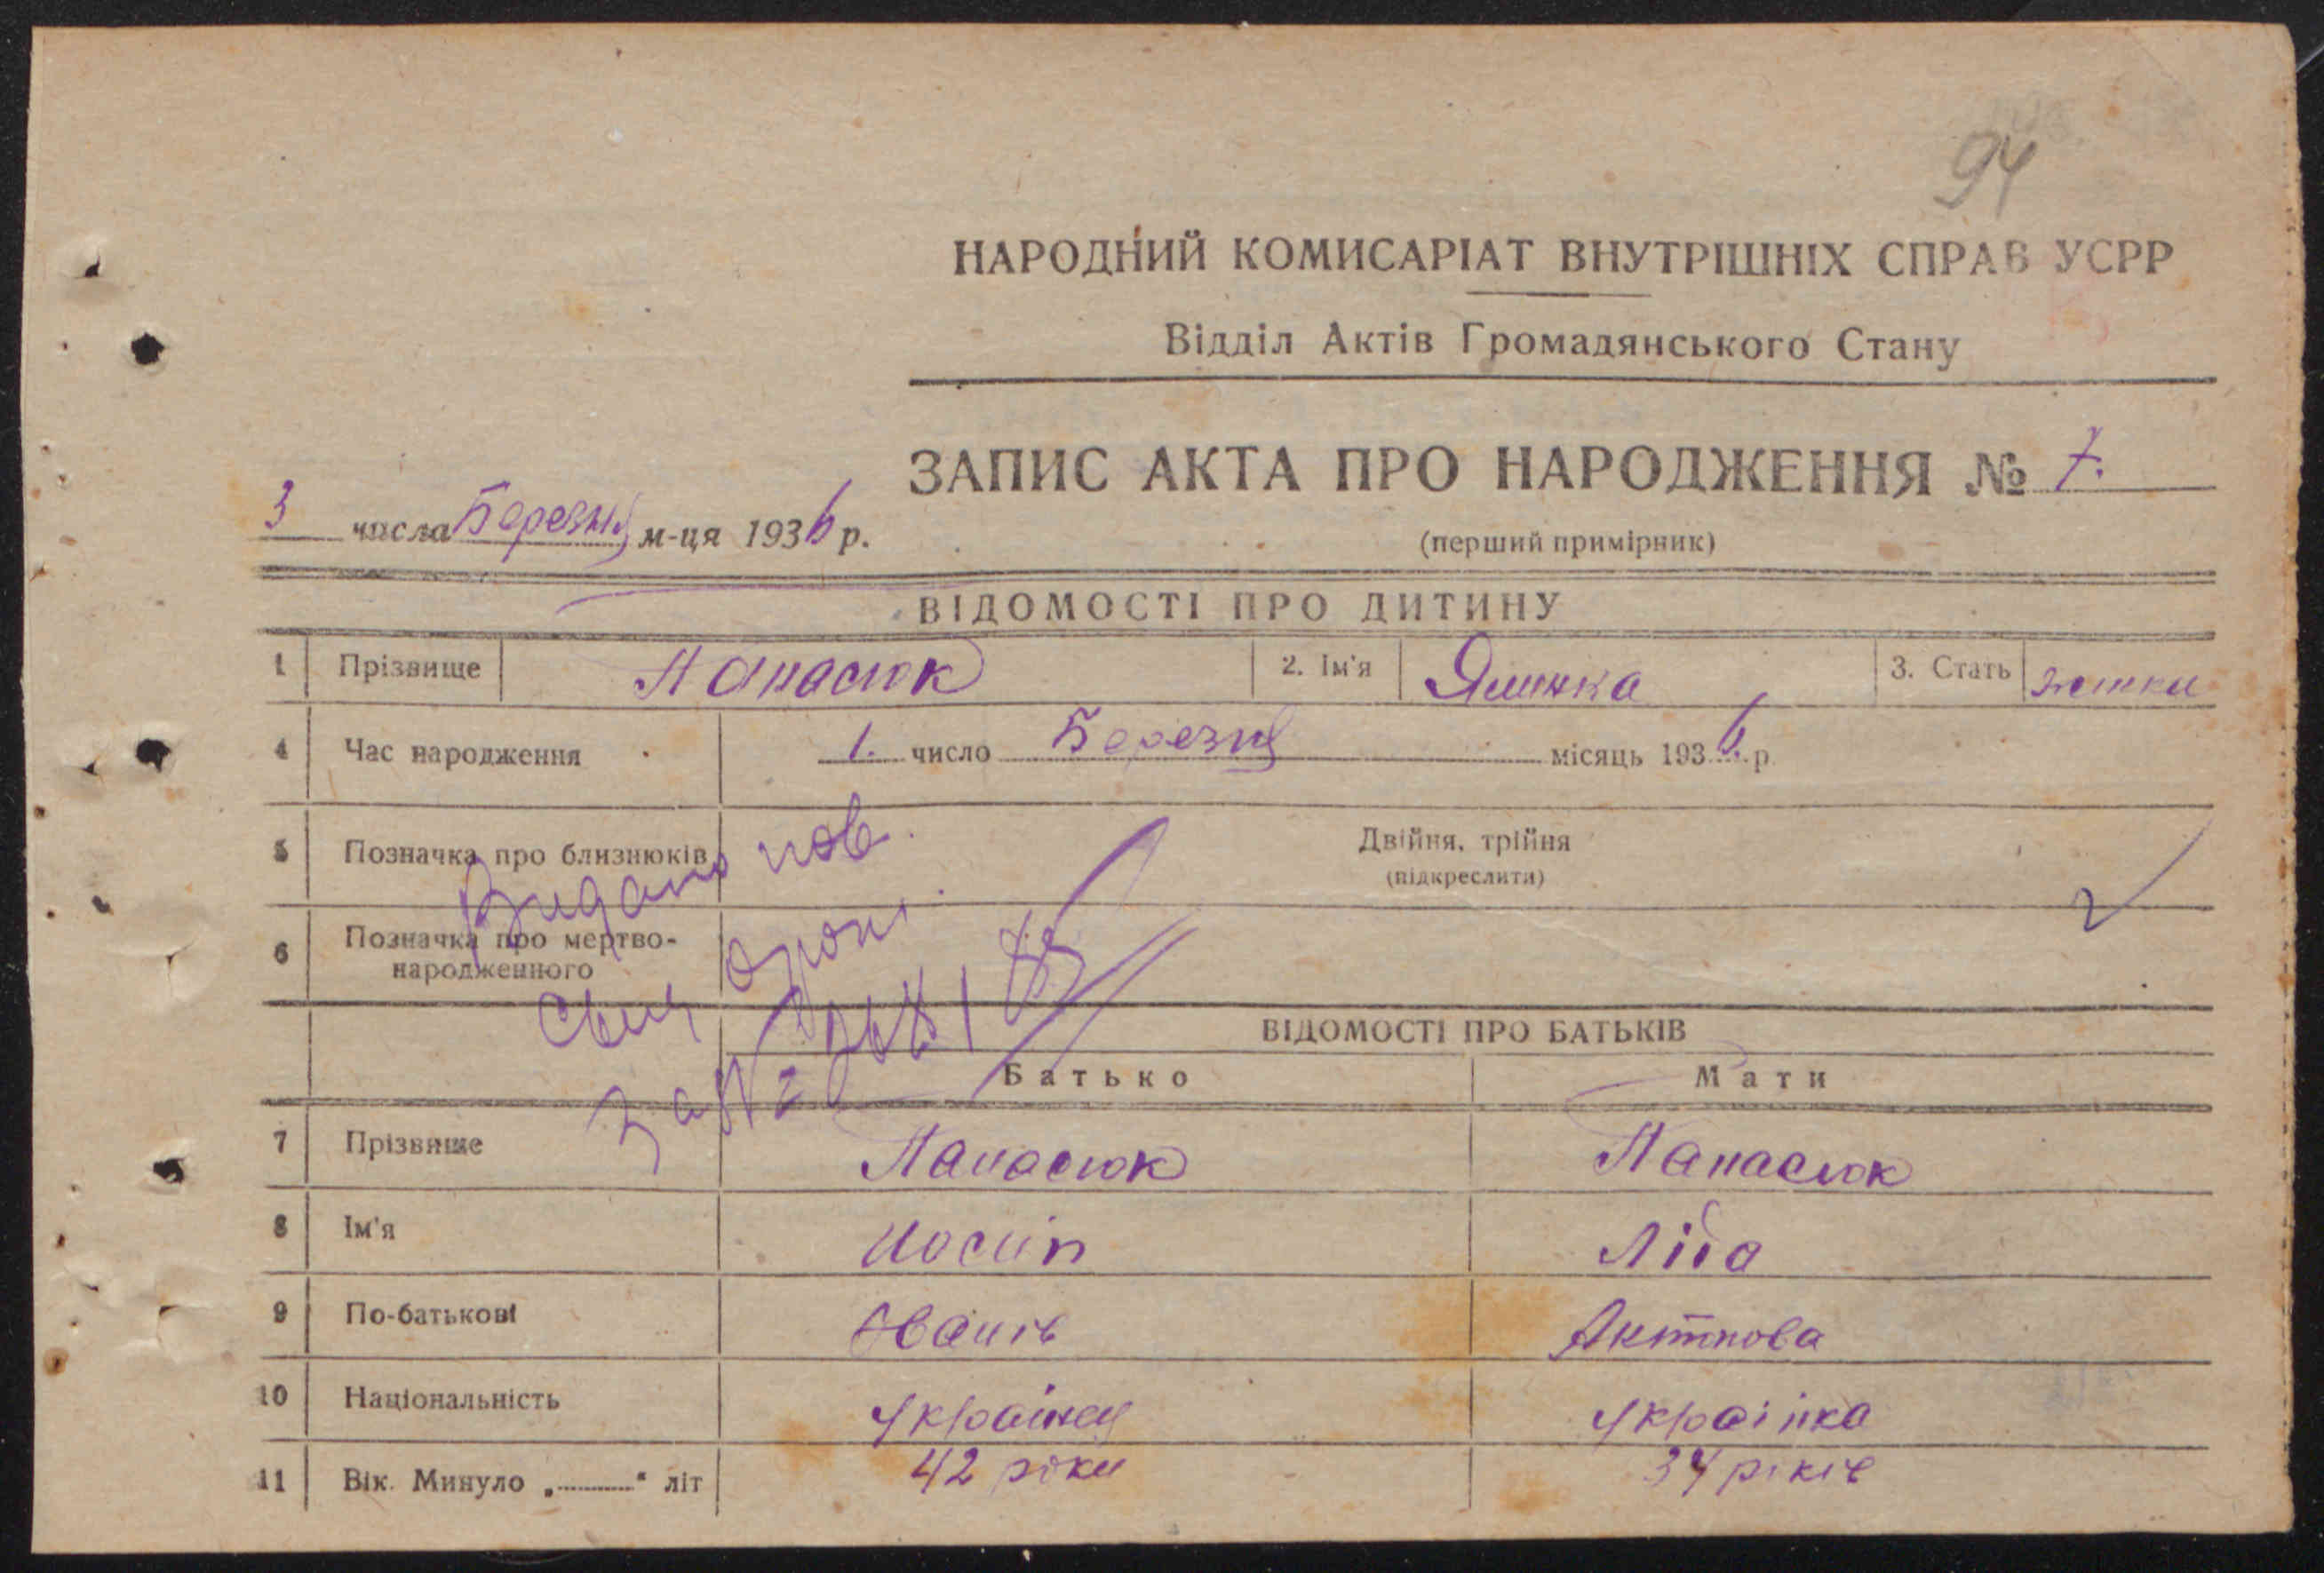 94
НАРОДНИЙ КОМИСАРІАТ ВНУТРІШНІХ СПРАВ УСРР
Відділ Актів Громадянського Стану
ЗАПИС АКТА ПРО НАРОДЖЕННЯ № 7.
3 числа Березня м-ця 1936 р.
(перший примірник)
ВІДОМОСТІ ПРО ДИТИНУ
1 Прізвище Панасюк 2. Ім'я 3. Стать
4 Час народження 1. число Березня місяць 1936 р.
5 Позначка про близнюків Двійня, трійня
(підкреслити)
Видано пов.
6 Позначка про мертво-
народженного
свид
за №
ВІДОМОСТІ ПРО БАТЬКІВ
Батько Мати
7 Прізвище Панасюк Панасюк
8 Ім'я Иосип Ліда
9 По-батькові Іванів
10 Національність Українец Українка
11 Вік. Минуло „ “ літ 42 роки 34 років